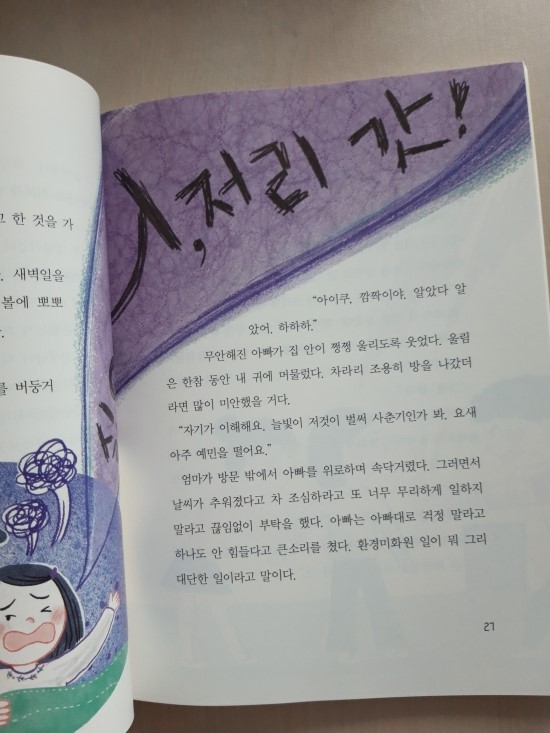 고 한 것을 가
새벽일을
볼에 뽀뽀
를 버둥거
저리 갓!
"아이쿠, 깜짝이야. 알았다 알
았어. 하하하."
무안해진 아빠가 집 안이 쩡쩡 울리도록 웃었다. 울림
은 한참 동안 내 귀에 머물렀다. 차라리 조용히 방을 나갔더
라면 많이 미안했을 거다.
"자기가 이해해요. 늘빛이 저것이 벌써 사춘기인가 봐. 요새
아주 예민을 떨어요."
엄마가 방문 밖에서 아빠를 위로하며 속닥거렸다. 그러면서
날씨가 추워졌다고 차 조심하라고 또 너무 무리하게 일하지
말라고 끊임없이 부탁을 했다. 아빠는 아빠대로 걱정 말라고
하나도 안 힘들다고 큰소리를 쳤다. 환경미화원 일이 뭐 그리
대단한 일이라고 말이다.
27